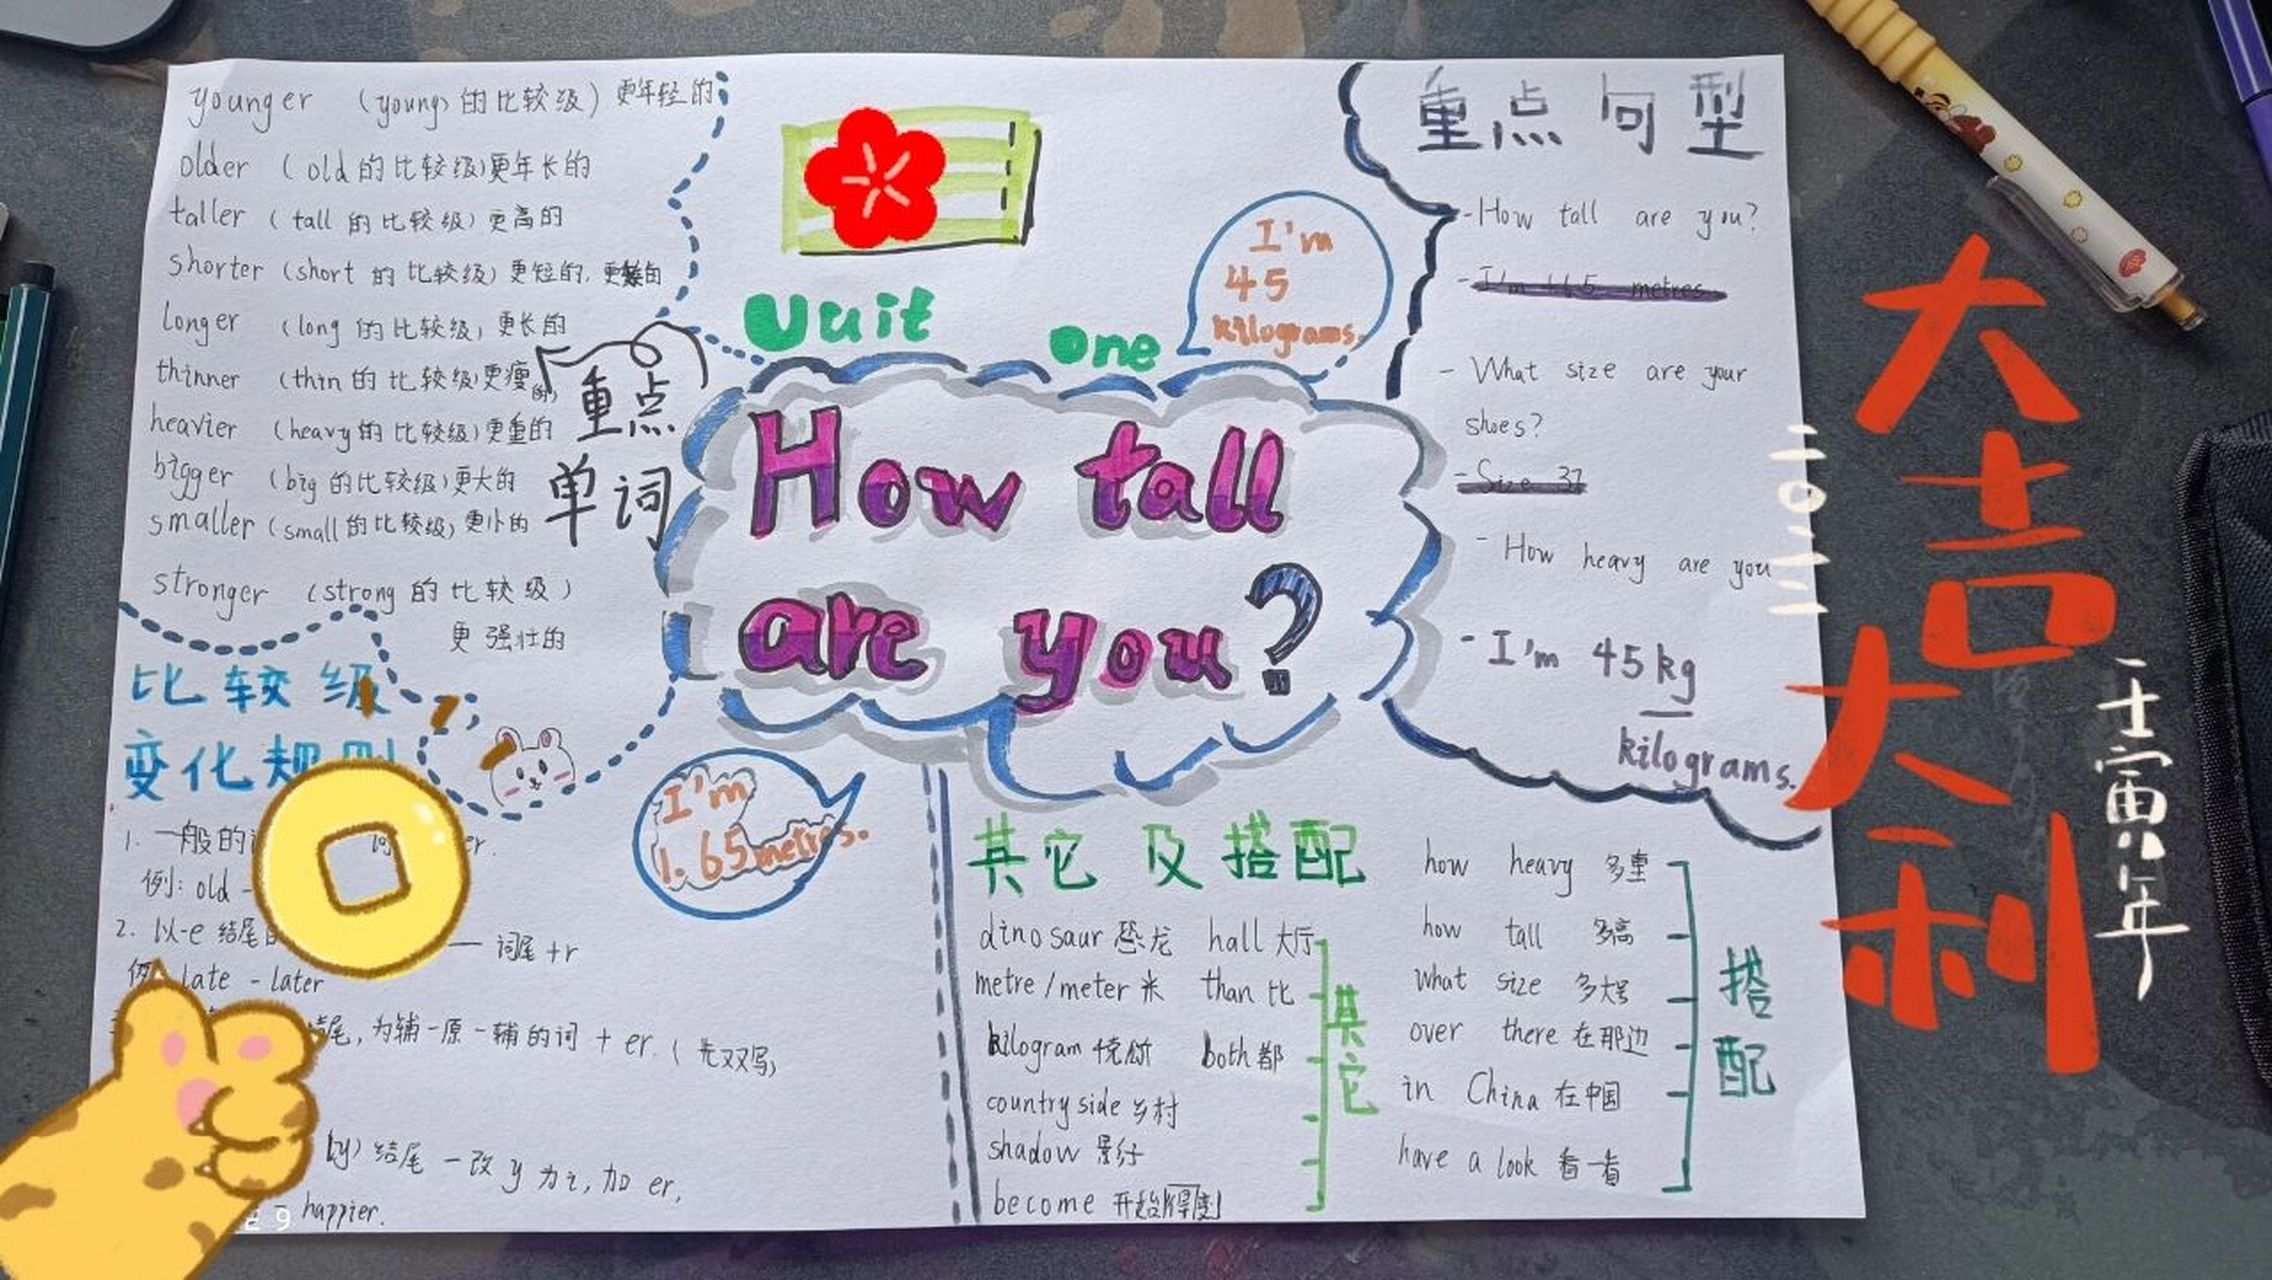 younger （young 的比较级）更年轻的
older （old 的比较级）更年长的
taller （tall 的比较级）更高的
shorter （short 的比较级）更短的，更矮的
longer （long 的比较级）更长的
thinner （thin 的比较级）更瘦的
heavier （heavy 的比较级）更重的
bigger （big 的比较级）更大的
smaller （small 的比较级）更小的
stronger （strong 的比较级）
更强壮的
重点
单词
Unit One
I'm
45
kilograms.
How tall
are you?
重点句型
-How tall are you?
-I'm 1.65 metres.
- What size are your
shoes?
-Size 37
- How heavy are you
- I'm 45 kg
kilograms.
比较级
变化规则
1. 一般的 词 er.
例: old -
2. 以-e 结尾 — 词尾 +r
例: late - later
结尾, 为辅-原-辅的词 + er. (先双写)
y) 结尾 - 改 y 为 i, 加 er,
- happier.
29
I'm
1.65 metres.
其它及搭配
dinosaur 恐龙 hall 大厅
metre/meter 米 than 比
kilogram 千克 both 都
countryside 乡村
shadow 影子
become 开始变得
其它
how heavy 多重
how tall 多高
what size 多大号
over there 在那边
in China 在中国
have a look 看一看
搭配
大吉大利
二〇二二
壬寅年